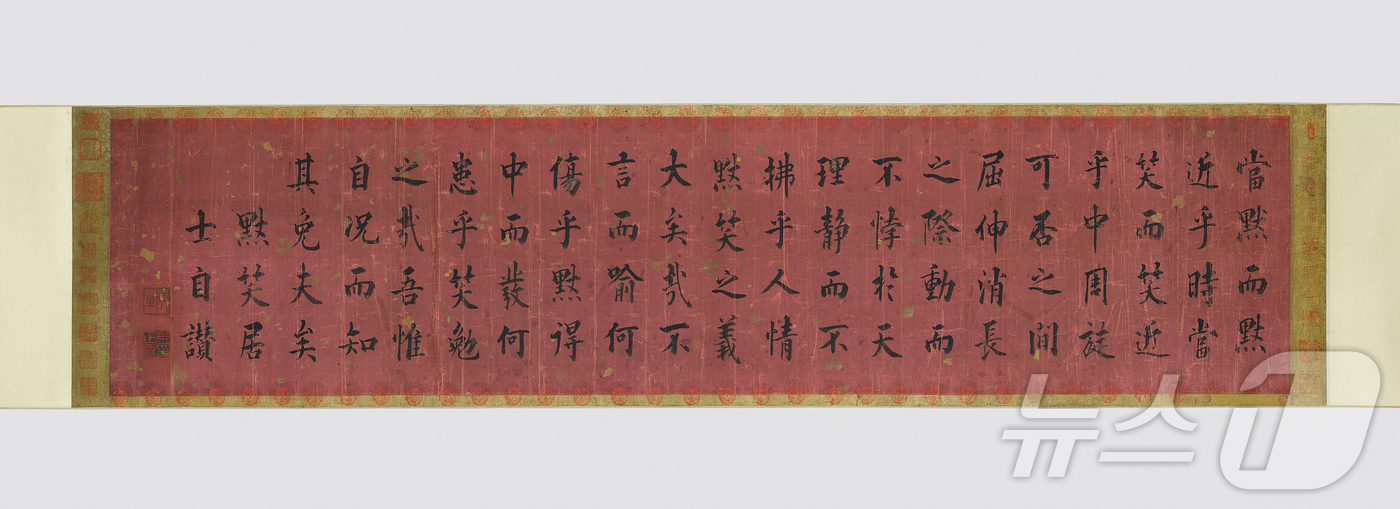 當默而默
近乎時當
笑而笑近
乎中周旋
可否之間
屈伸消長
之際動而
不悖於天
理靜而不
拂乎人情
默笑之義
大矣哉不
言而喻何
傷乎默得
中而發何
患乎笑勉
之哉吾惟
自况而知
其免夫矣
默笑居
士自讃
뉴스1